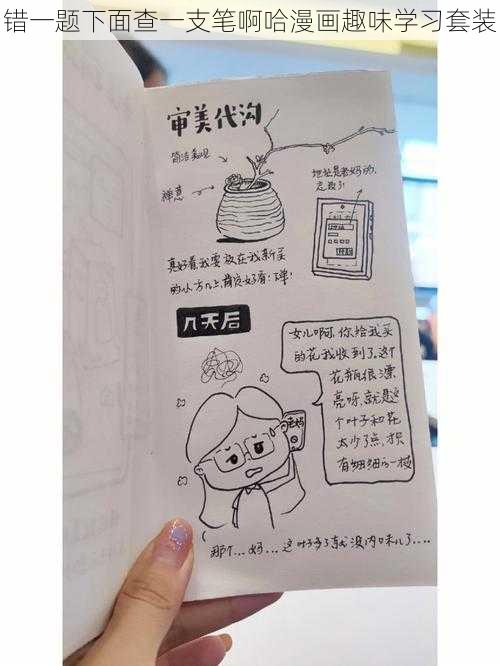 错一题下面查一支笔啊哈漫画趣味学习套装
审美代沟
简洁美观
禅意
地址是老妈的,
忘改了!
真好看我要放在我新买
的小方几上,肯定好看!禅!
几天后
女儿啊,你给我买
的花我收到了,这个
花瓶很漂
亮呀,就是这
个叶子和花
太少了点,才只
有细细的一枝
老妈
那个...妈...这叶子多了就没内味儿了....